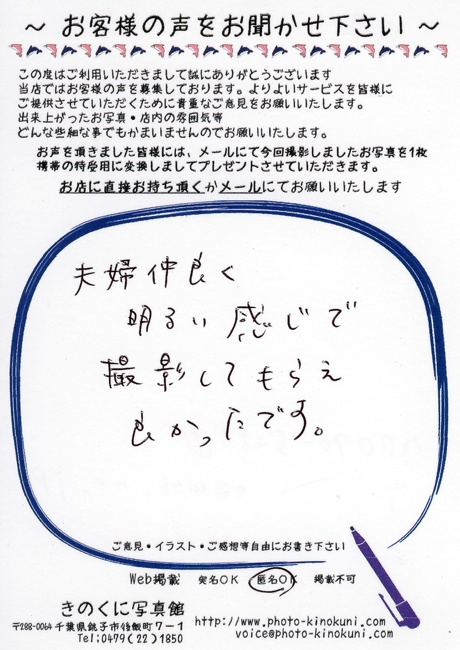 ～ お客様の声をお聞かせ下さい ～
この度はご利用いただきまして誠にありがとうございます
当店ではお客様の声を募集しております。よりよいサービスを皆様に
ご提供させていただくために貴重なご意見をお願いいたします。
出来上がったお写真・店内の雰囲気等
どんな些細な事でもかまいませんのでお願いいたします。
お声を頂きました皆様には、メールにて今回撮影しましたお写真を1枚
携帯の待受用に変換しましてプレゼントさせていただきます。
お店に直接お持ち頂くかメールにてお願いいたします
夫婦仲良く
明るい感じで
撮影してもらえ
良かったです。
ご意見・イラスト・ご感想等自由にお書き下さい
Web掲載 実名OK 匿名OK 掲載不可
きのくに写真館
〒288-0064 千葉県銚子市後飯町7-1
Tel:0479(22)1850
http://www.photo-kinokuni.com/
voice@photo-kinokuni.com